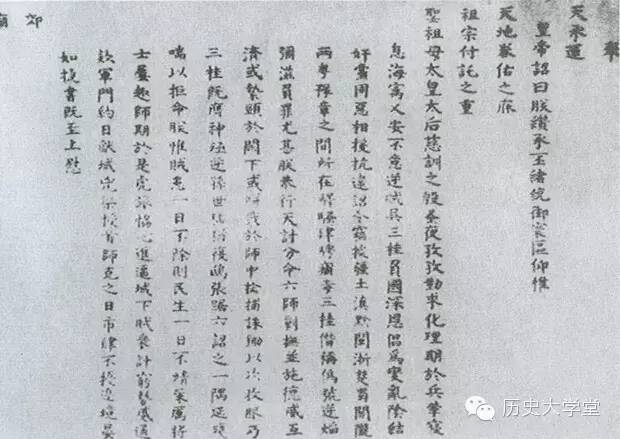 奉
天承運
皇帝詔曰朕纘承丕緒統御寰區仰惟
天地眷佑之庥
祖宗付託之重
聖祖母太皇太后慈訓之殷蚤夜孜孜勤求化理期於兵革寖
息海寓乂安不意逆賊吳三桂負國深恩倡爲變亂陰結
奸黨同惡相援抗違詔令竊據疆土滇黔閩浙楚蜀關隴
兩粤豫章之間所在驛騷肆痡毒三桂僭稱偽號逆焰
彌滋負罪尤甚朕恭行天討分命六師剿撫並施德威互
濟或繫頸於闕下或馘於師中擒捕誅鋤以次收服乃
三桂既膺神殛逆孫世璠猶復鴟張踞六詔之一隅延殘
喘以拒命朕惟賊患一日不除則民生一日不靖策厲將
士趣師期於是虎旅協心進逼城下賊衆計窮勢蹙
欵軍門約日獻城兇渠授首師克之日市肆不擾邊境晏
如捷書既至上慰
郊
廟
历史大学堂